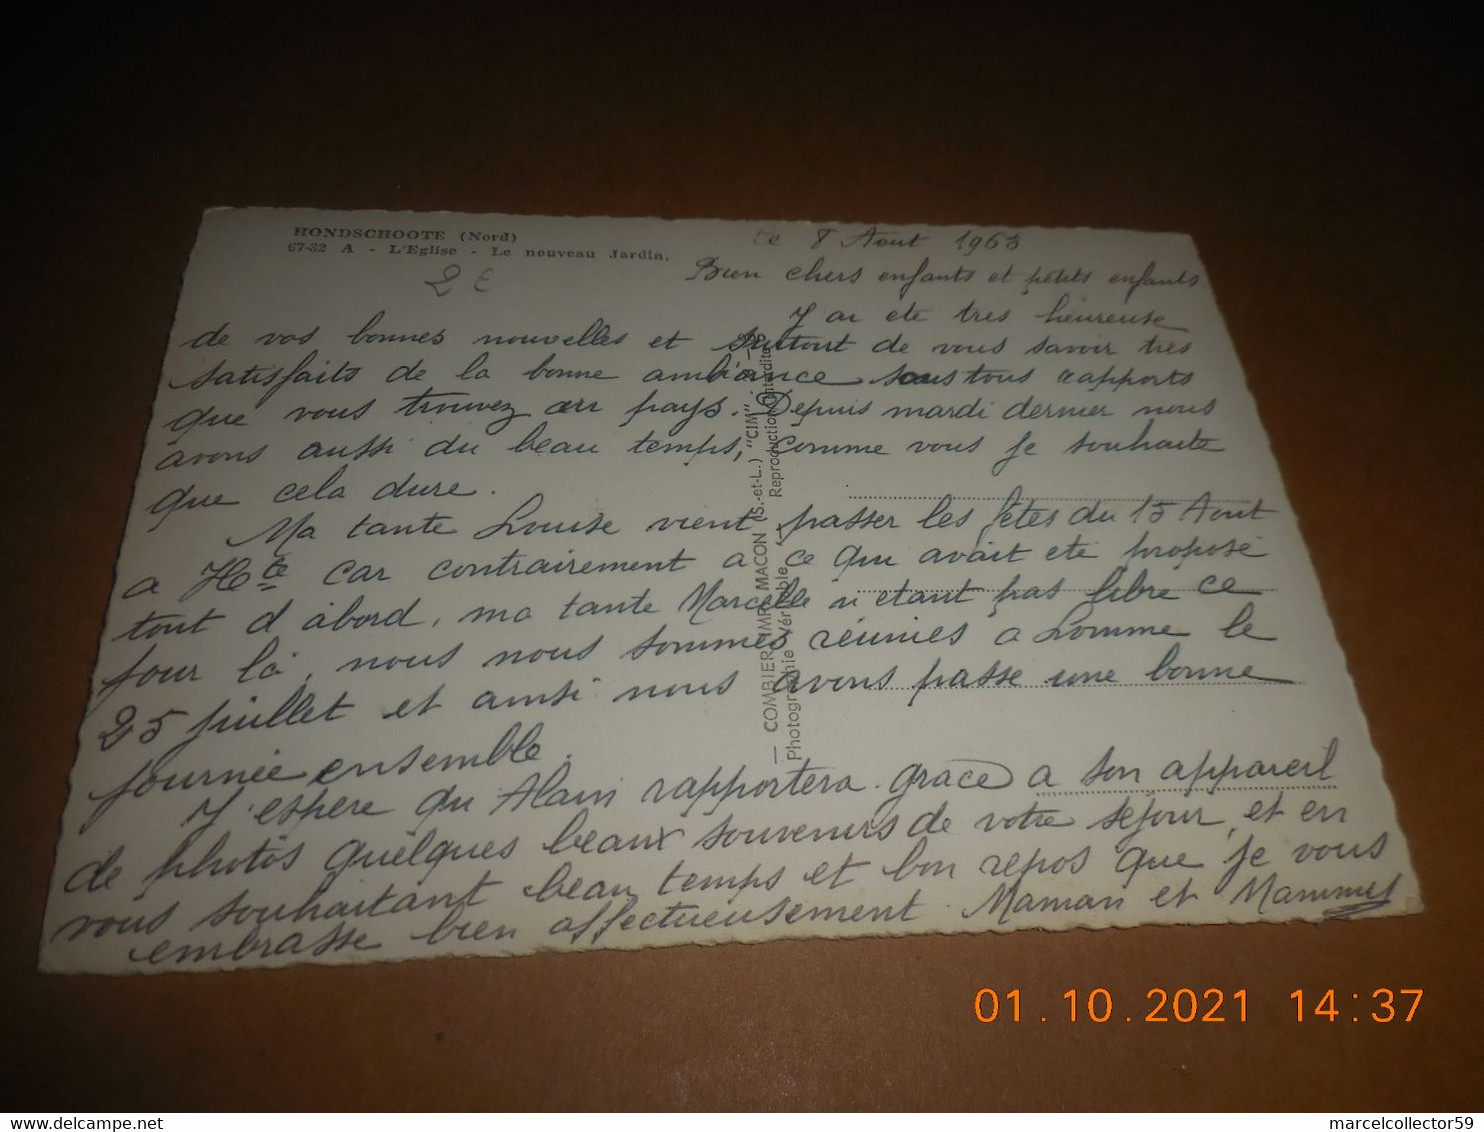 HONDSCHOOTE (Nord)
67-32 A - L'Eglise - Le nouveau Jardin.
2 €
Le 8 Aout 1963
Bien chers enfants et petits enfants
J ai ete tres heureuse
de vos bonnes nouvelles et surtout de vous savoir tres
satisfaits de la bonne ambiance sous tous rapports
que vous trouvez au pays. Depuis mardi dernier nous
avons aussi du beau temps, comme vous je souhaite
que cela dure.
Ma tante Louise vient passer les fetes du 15 Aout
a Hte car contrairement a ce qui avait ete propose
tout d abord, ma tante Marcelle n etant pas libre ce
jour là, nous nous sommes réunies a Lomme le
25 juillet et ainsi nous avons passe une bonne
journée ensemble.
J'espere qu Alain rapportera grace a son appareil
de photos quelques beaux souvenirs de votre séjour, et en
vous souhaitant beau temps et bon repos que je vous
embrasse bien affectueusement. Maman et Mammy
— COMBIER IMP. MACON (S.-et-L.) "CIM" -
Photographie Véritable - Reproduction interdite
01.10.2021 14:37
marcelcollector59